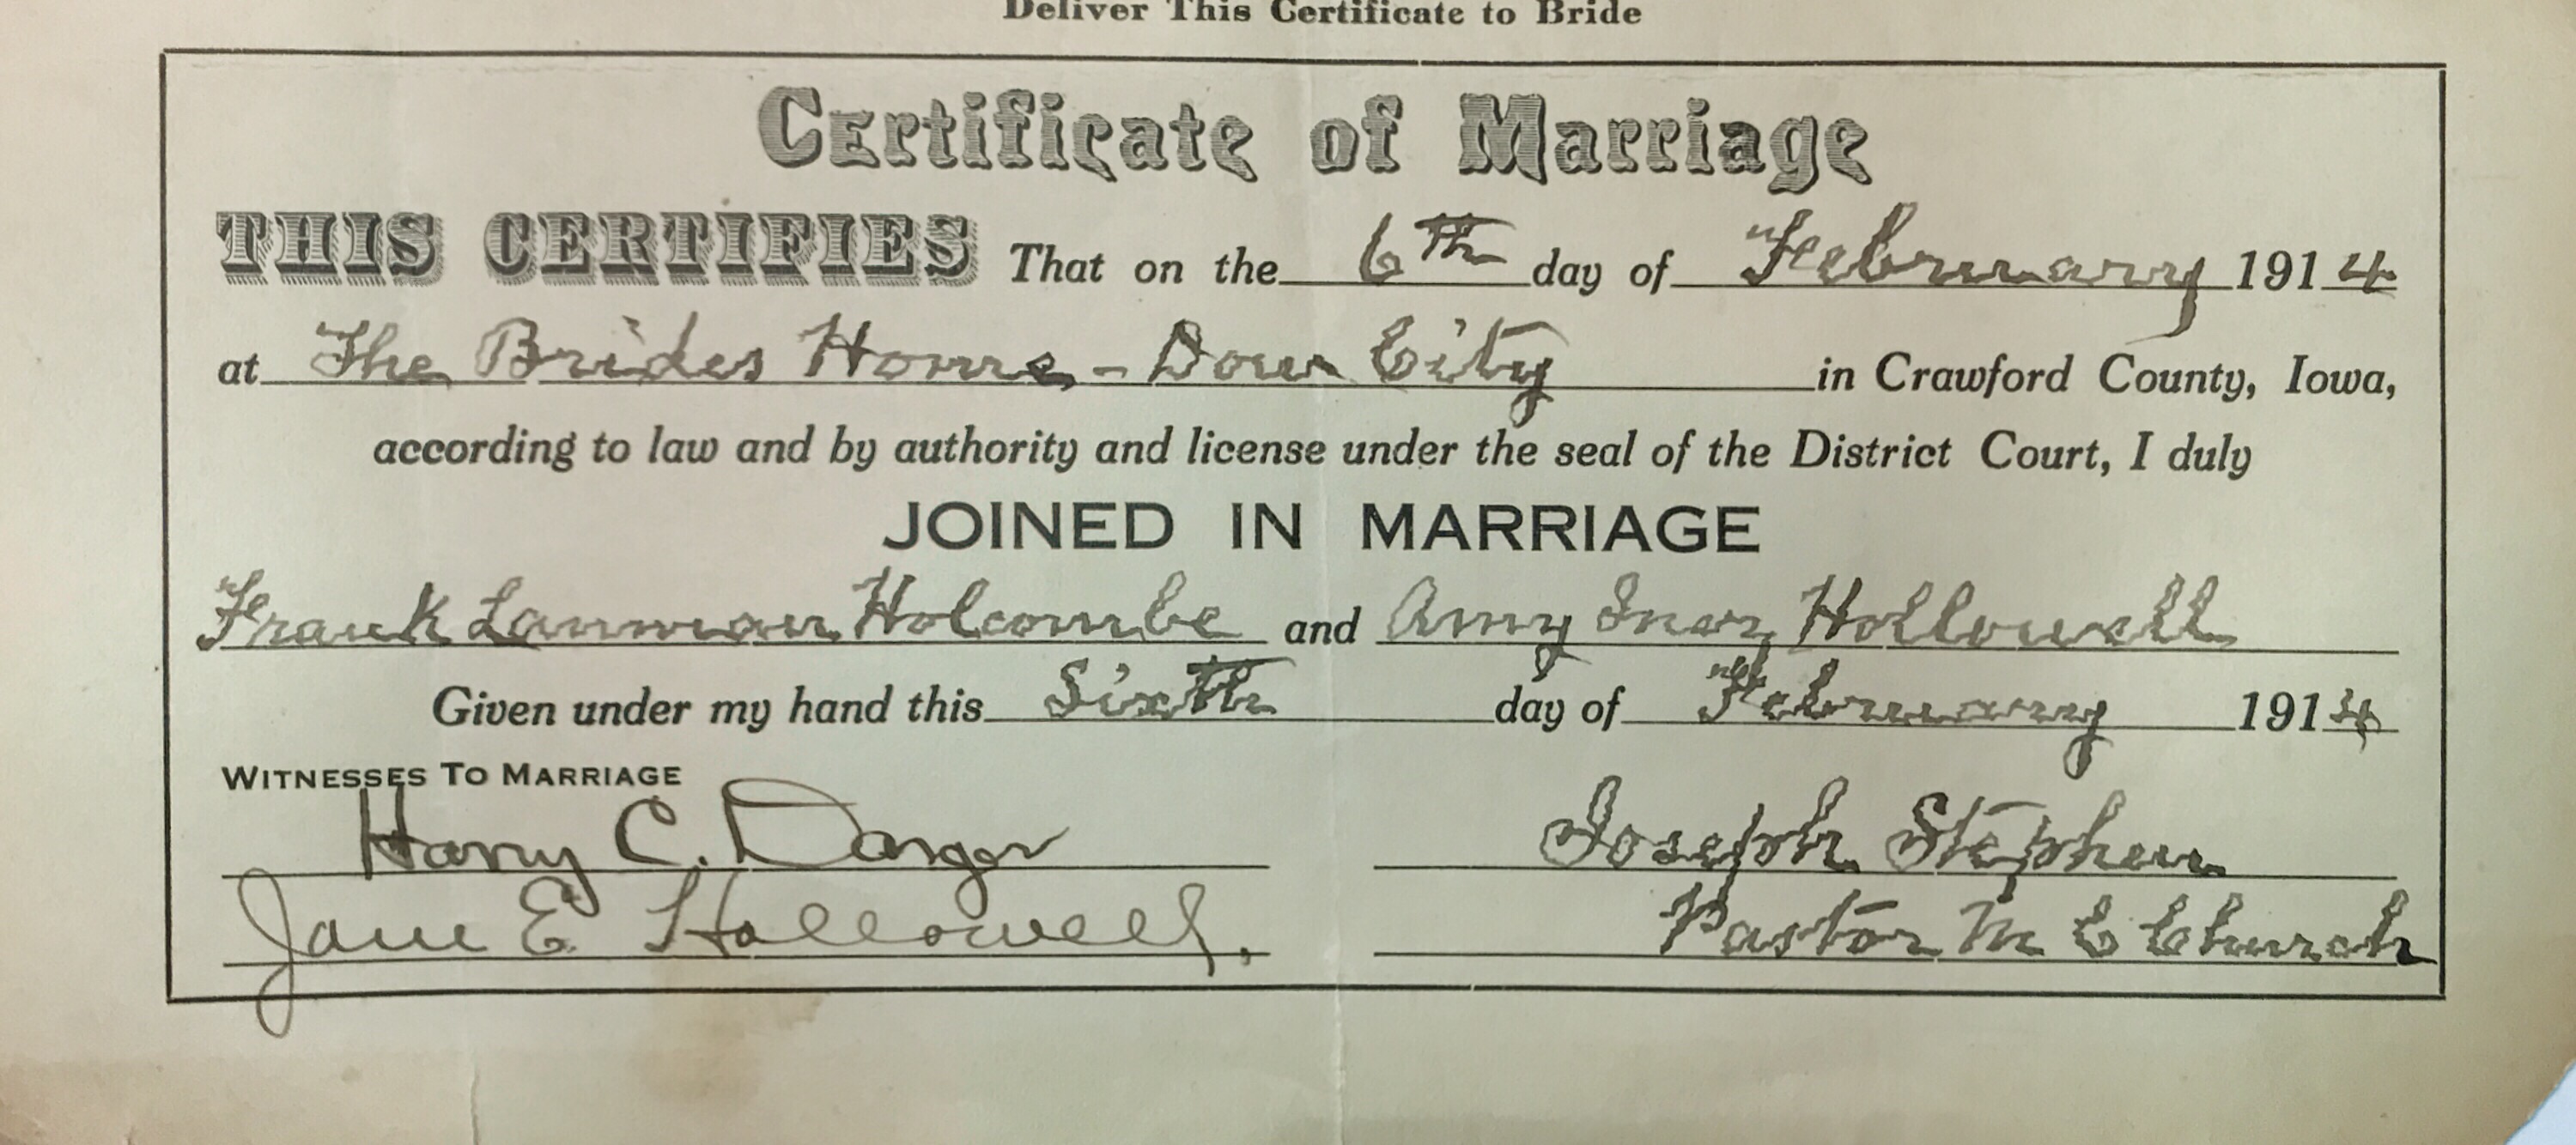 Deliver This Certificate to Bride
Certificate of Marriage
THIS CERTIFIES That on the 6th day of February 1914
at The Brides Home - Dow City in Crawford County, Iowa,
according to law and by authority and license under the seal of the District Court, I duly
JOINED IN MARRIAGE
Frank Lanman Holcombe and Amy Inez Hollowell
Given under my hand this Sixth day of February 1914
WITNESSES TO MARRIAGE
Harry C. Joseph Stephen
Jane E Hollowell. Pastor M E Church